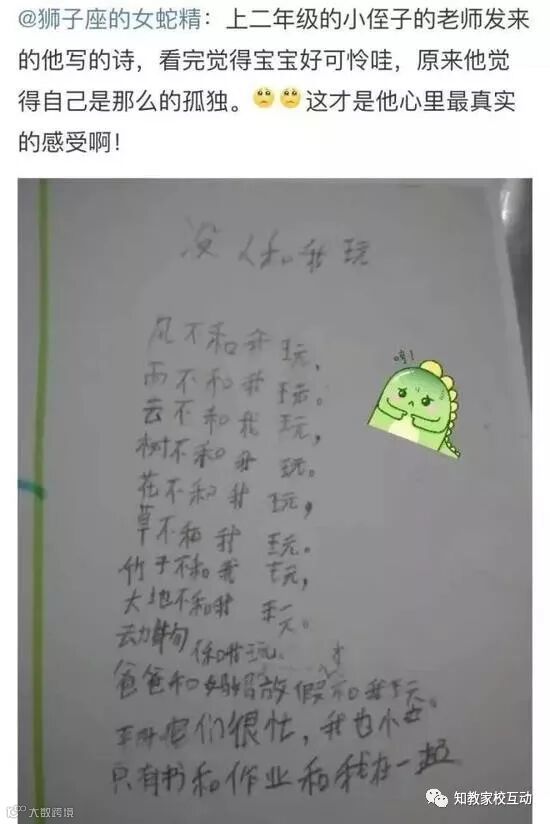 @狮子座的女蛇精：上二年级的小侄子的老师发来
的他写的诗，看完觉得宝宝好可怜哇，原来他觉
得自己是那么的孤独。这才是他心里最真实
的感受啊！
没人和我玩
风不和我玩，
雨不和我玩。
云不和我玩，
树不和我玩。
花不和我玩，
草不和我玩。
竹子不和我玩，
大地不和我玩。
动物 和我玩。
爸爸和妈妈放假才和我玩。
平时他们很忙，我也
只有书和作业和我在一起
哼！
知教家校互动
大数跨境